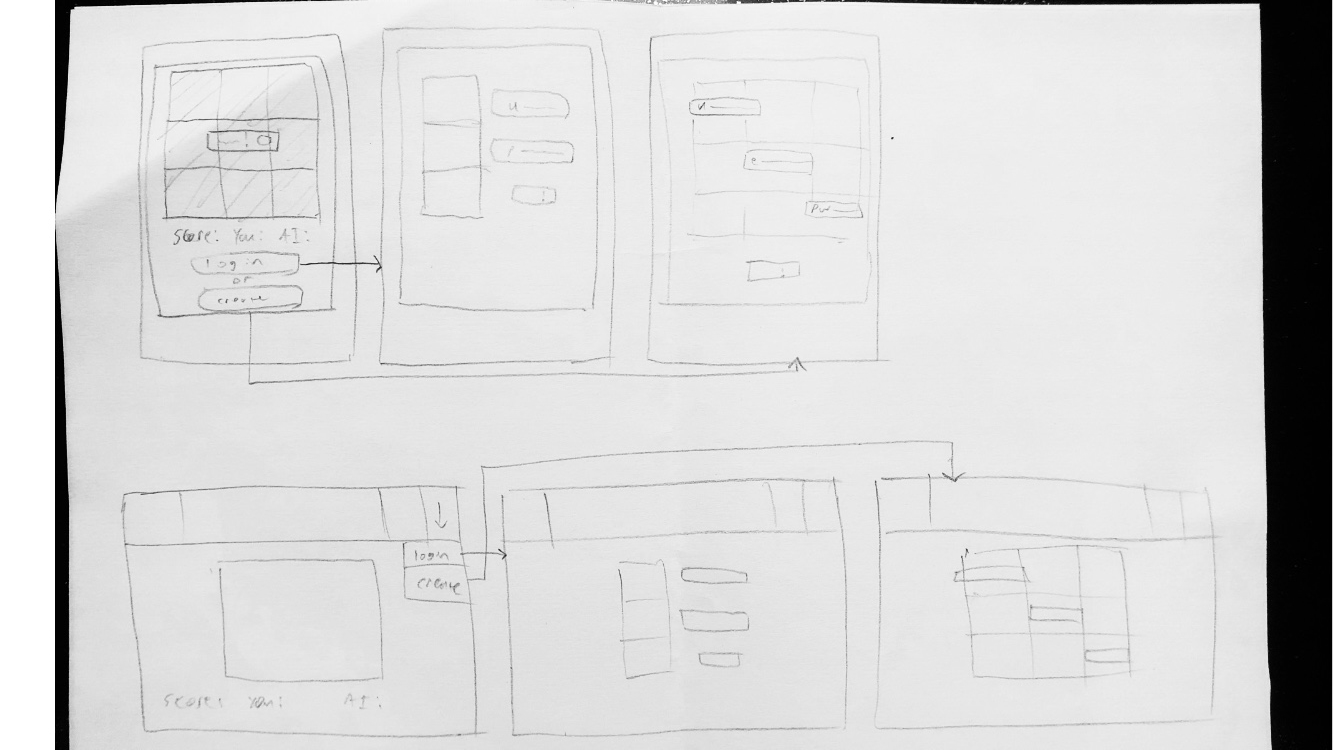 Score: You: AI:
log in
or
create
u
e
Pw
login
create
Score: You: AI: